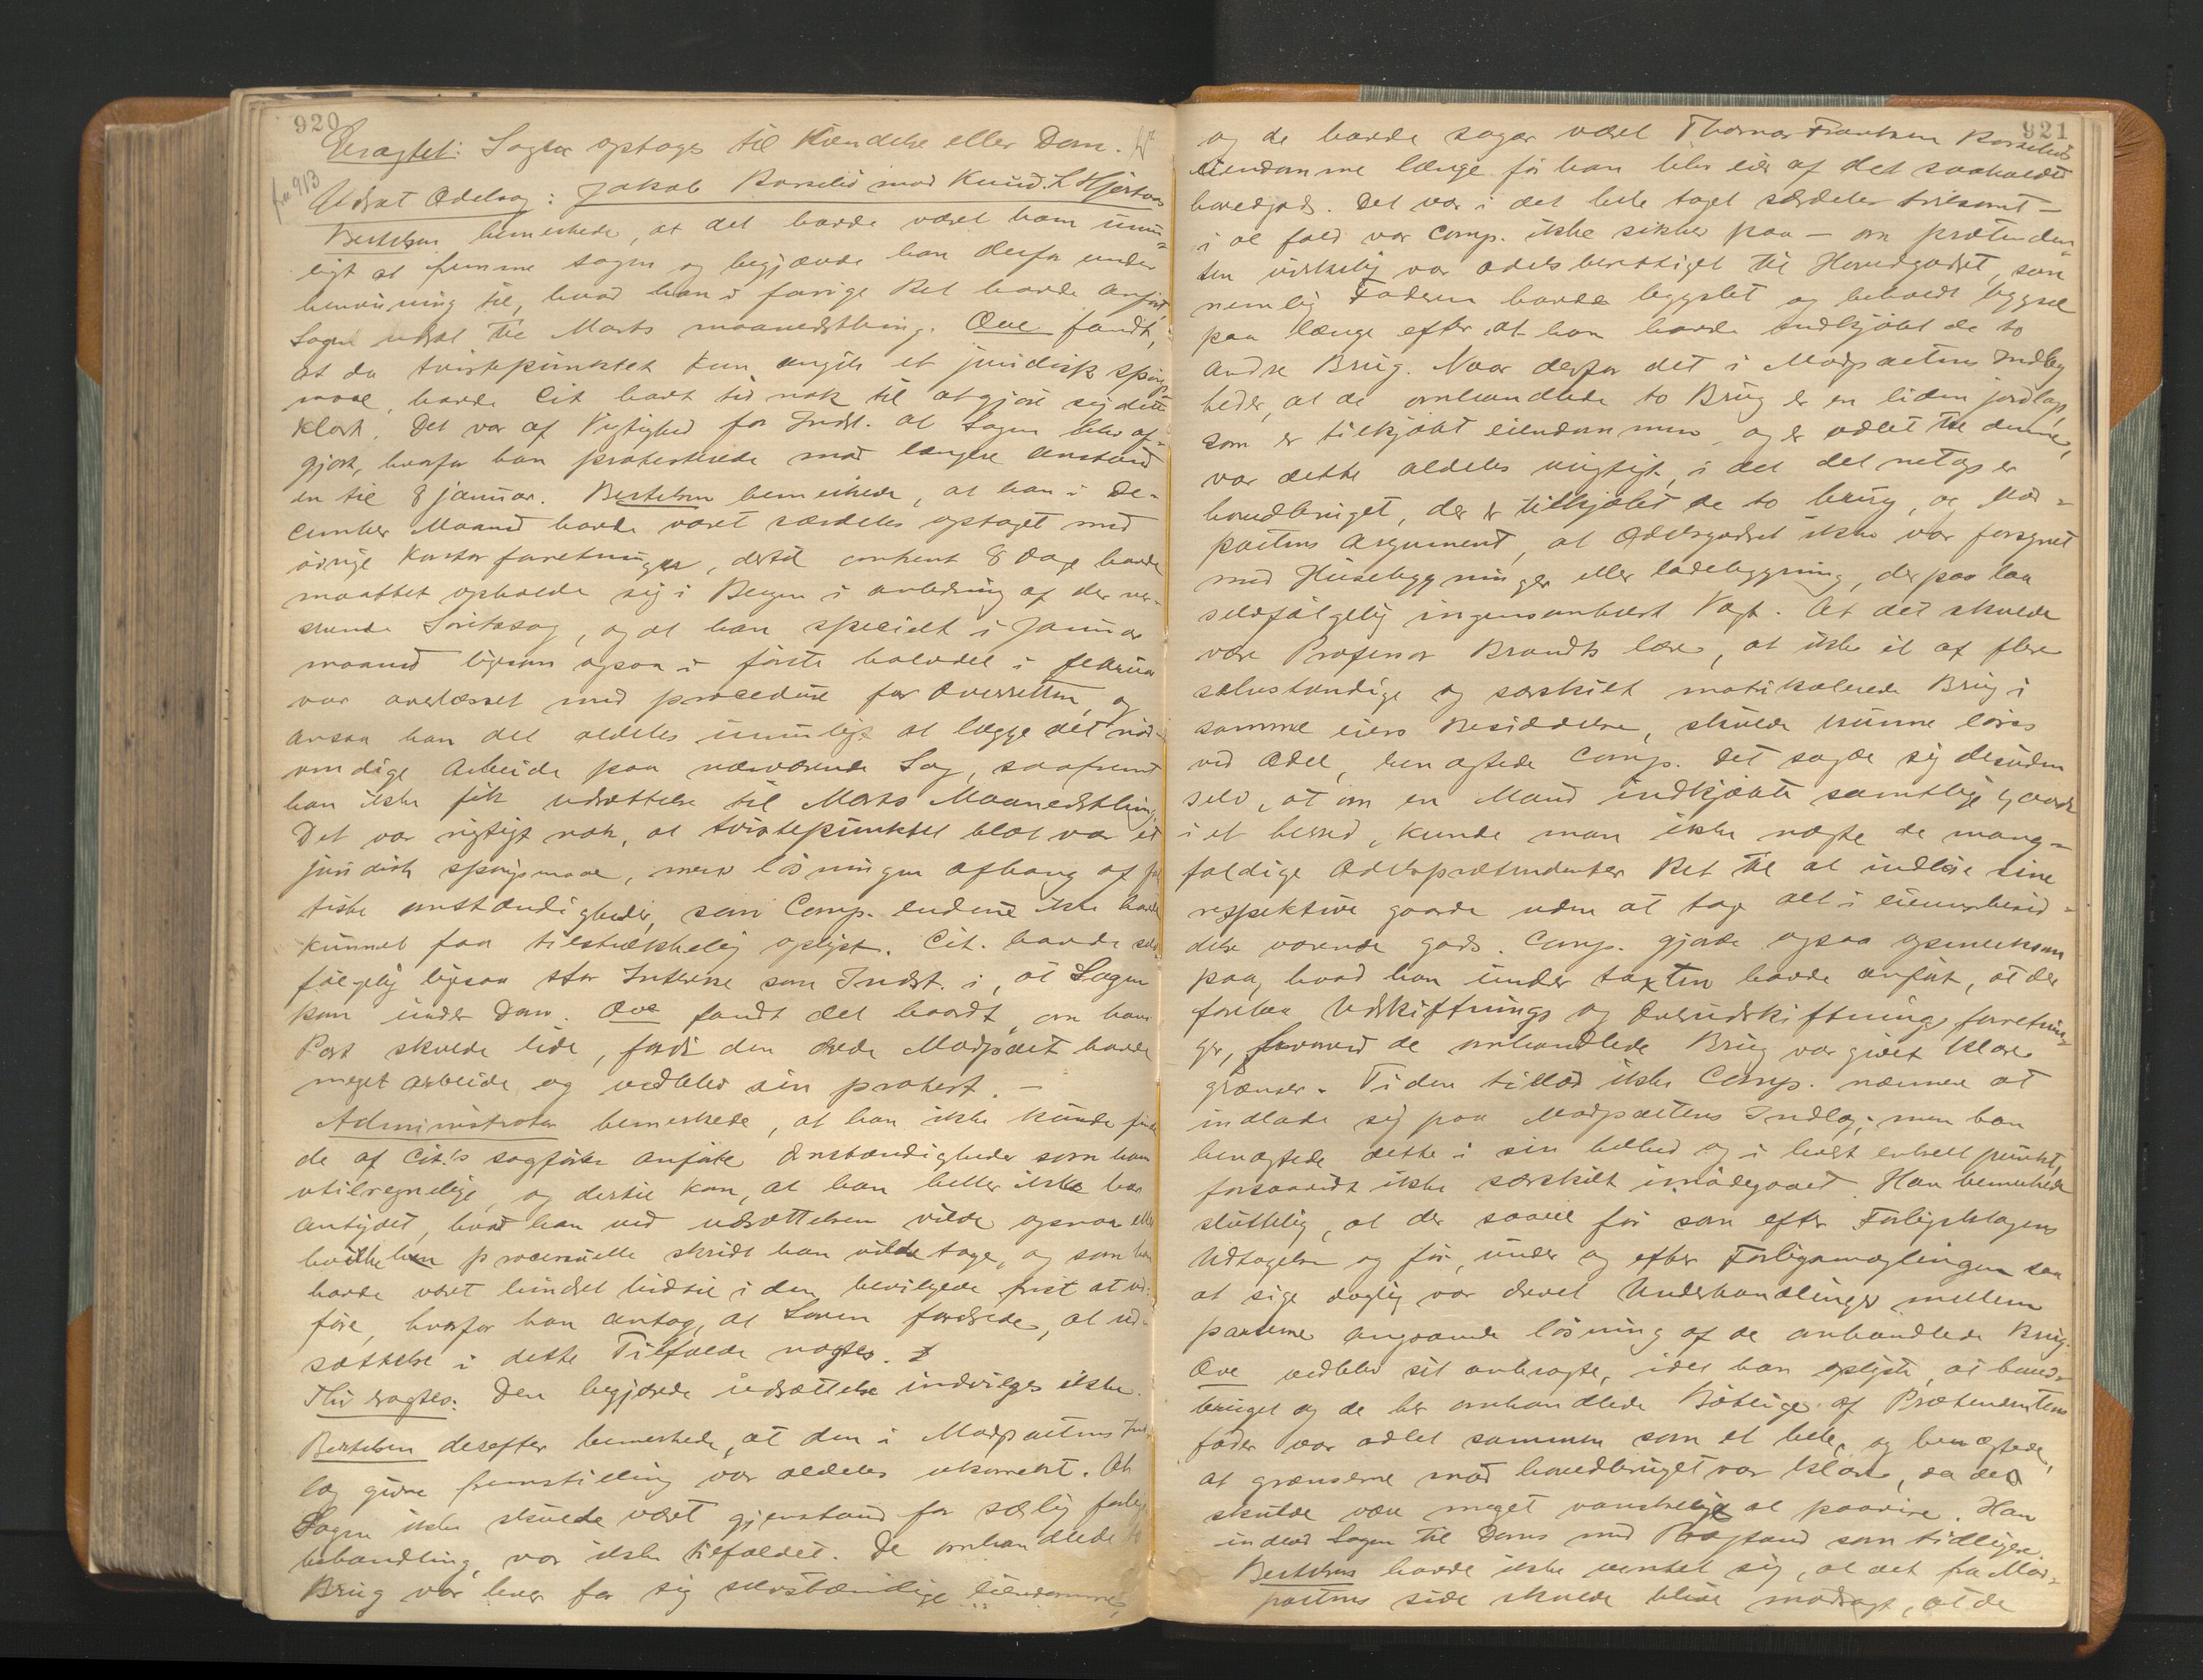 920
Eragtet: Sagen optages til Kjendelse eller Dom.
fra 913
Udsat Odelssag: Jakob Korselid mod Knud L Hjertaas
Bertelsen bemerkede, at det havde været ham umu-
ligt at fremme sagen og begjærede han derfor under
henvisning til, hvad han i forrige Ret havde anført,
Sagen udsat til Marts maanedsthing. Ove fandt,
at da tvistepunktet kun angik et juridisk spørgs-
maal, havde Cit havt tid nok til at gjøre sig dette
klart. Det var af Vigtighed for Indst. at Sagen blev af-
gjort, hvorfor han protesterede mod længere Anstand
en til 8 januar. Bertelsen bemerkede, at han i De-
cember Maaned havde været særdeles optaget med
øvrige Kontorforretninger, dertil omtrent 8 dage havde
maattet opholde sig i Bergen i anledning af der ver-
serende Sivilsag, og at han specielt i Januar
maaned ligesom ogsaa i første halvdel i februar
var overlæsset med procedure for Overretten, og
ansaa han det aldeles umuligt at lægge det nød-
vendige Arbeide paa nærværende Sag, saafremt
han ikke fik udsættelse til Marts Maanedsthing
Det var rigtigt nok, at tvistepunktet blot var et
juridisk spørgsmaal, men løsningen afhang af fak
tiske omstændigheder, som Comp. endnu ikke havde
kunnet faa tilstrækkelig oplyst. Cit. havde selv
følgelig ligesaa stor Interesse som Indst. i, at Sagen
kom under Dom. Ove fandt det haardt, om hans
Part skulde lide, fordi den ærede Modpart havde
meget arbeide og vedblev sin protest. —
Administrator bemerkede, at han ikke kunde finde
de af Cit.'s sagfører anførte Omstændigheder som ham
utilregnelige, og dertil kom, at han heller ikke har
antydet, hvad han ved udsættelsen vilde opnaa eller
hvilke processuelle skridt han vilde tage, og som han
havde været hindret hidtil i den bevilgede frist at ud-
føre, hvorfor han antog, at Loven fordrede, at ud-
sættelse i dette Tilfælde nægtes.
Thi eragtes: Den begjærede udsættelse indvilges ikke.
Bertelsen derefter bemerkede, at den i Modpartens Ind
læg givne fremstilling var aldeles ukorrekt. At
Sagen ikke skulde været gjenstand for særlig forligs
behandling, var ikke tilfældet. De omhandlede to
Brug var hver for sig selvstændige eiendomme,
921
og de havde sogar været Thomas Frantsen Korselids
eiendomme længe før han blev eier af det saakaldte
hovedgods. Det var i det hele taget særdeles tvilsomt —
i al fald var Comp. ikke sikker paa — om prætenden-
ten virkelig var odelsberettiget til Hovedgodset, som
nemlig Faderen havde bygslet og beholdt bygsel
paa længe efter at han havde indkjøbt de to
andre Brug. Naar derfor det i Modpartens Indlæg
heder, at de omhandlede to Brug er en liden jordlap,
som er tilkjøbt eiendommen, og er odlet til denne,
var dette aldeles urigtigt, i det det netop er
hovedbruget, der er tilkjøbt de to brug, og Mod-
partens Argument, at Odelsgodset ikke var forsynet
med Husebygninger eller ladebygning, derpaa laa
selvfølgelig ingensomhelst Vægt. At det skulde
være Professor Brandts lære, at ikke et af flere
selvstændige og særskilt matrikulerede Brug i
samme eiers Besiddelse, skulde kunne løses
ved Odel, benægtede Comp. Det sagde sig desuden
selv, at om en Mand indkjøbte samtlige gaarde
i et herred, kunde man ikke nægte de mang-
foldige Odelsprætendenter Ret til at indløse sine
respektive gaarde uden at tage alt i eierens besid-
delse værende gods. Comp. gjorde ogsaa opmerksom
paa, hvad han under taxten havde anført, at der
forelaa Udskiftnings og Overudskiftningsforretnin-
ger, hvorved de omhandlede Brug var givet klare
grænser. Tiden tillod ikke Comp. nærmere at
indlade sig paa Modpartens Indlæg; men han
benægtede dette i sin helhed og i hvert enkelt punkt,
forsaavidt ikke særskilt imødegaaet. Han bemerkede
sluttelig, at der saavel før som efter Forligsklagens
Udtagelse og før, under og efter Forligsmæglingen saa
at sige daglig var drevet Underhandlinger mellem
parterne angaaende løsning af de omhandlede Brug.
Ove vedblev sit anbragte, idet han oplyste, at hoved-
bruget og de her omhandlede Bøbrug af Prætendentens
fader var odlet sammen som et hele, og benægtede,
at grænserne mod hovedbruget var klare, da de
skulde være meget vanskelige at paavise. Han
indlod Sagen til Doms med Paastand som tidligere.
Bertelsen havde ikke ventet sig, at det fra Mod-
partens side skulde blive modsagt, at de